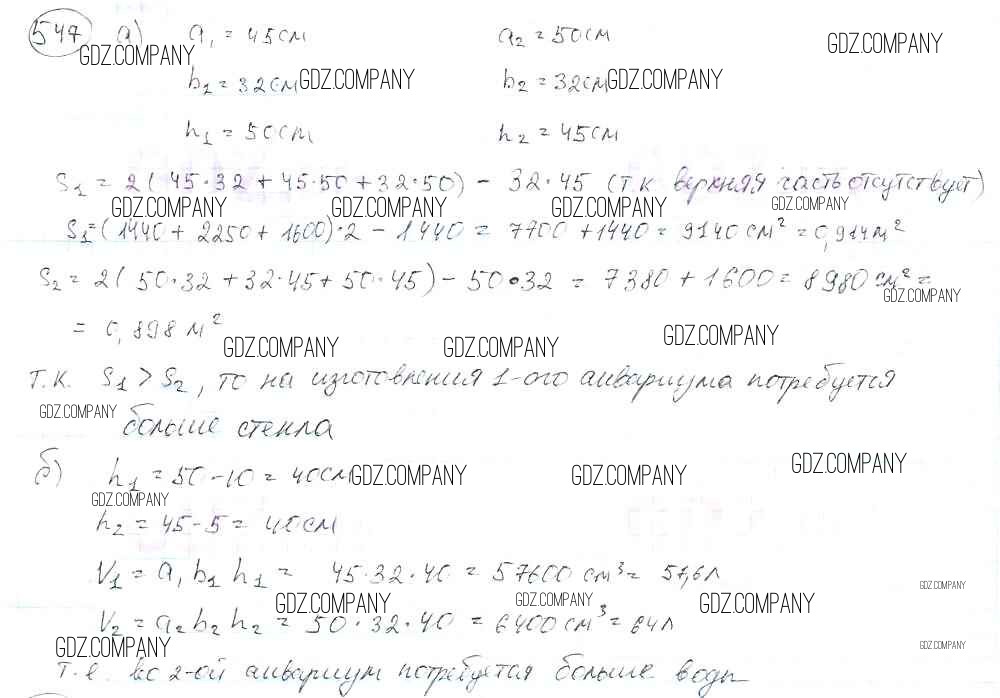 547 а) a₁ = 45см a₂ = 50см GDZ.COMPANY
GDZ.COMPANY
b₁ = 32см GDZ.COMPANY b₂ = 32см GDZ.COMPANY
h₁ = 50см h₂ = 45см
S₁ = 2(45·32 + 45·50 + 32·50) - 32·45 (т.к верхняя часть отсутствует)
GDZ.COMPANY GDZ.COMPANY GDZ.COMPANY GDZ.COMPANY
S₁=(1440 + 2250 + 1600)·2 - 1440 = 7700 + 1440 = 9140 см² = 0,914м²
S₂ = 2(50·32 + 32·45 + 50·45) - 50·32 = 7380 + 1600 = 8980 см² =
GDZ.COMPANY
= 0,898 м²
GDZ.COMPANY GDZ.COMPANY GDZ.COMPANY
т.к. S₁ > S₂, то на изготовления 1-ого аквариума потребуется
GDZ.COMPANY
больше стекла
б) h₁ = 50 - 10 = 40см GDZ.COMPANY GDZ.COMPANY GDZ.COMPANY
GDZ.COMPANY
h₂ = 45 - 5 = 40см
V₁ = a₁ b₁ h₁ = 45·32·40 = 57600 см³ = 57,6л
GDZ.COMPANY
GDZ.COMPANY GDZ.COMPANY GDZ.COMPANY
V₂ = a₂ b₂ h₂ = 50·32·40 = 6400 см³ = 64л
GDZ.COMPANY GDZ.COMPANY
т.е. во 2-ой аквариум потребуется больше воды